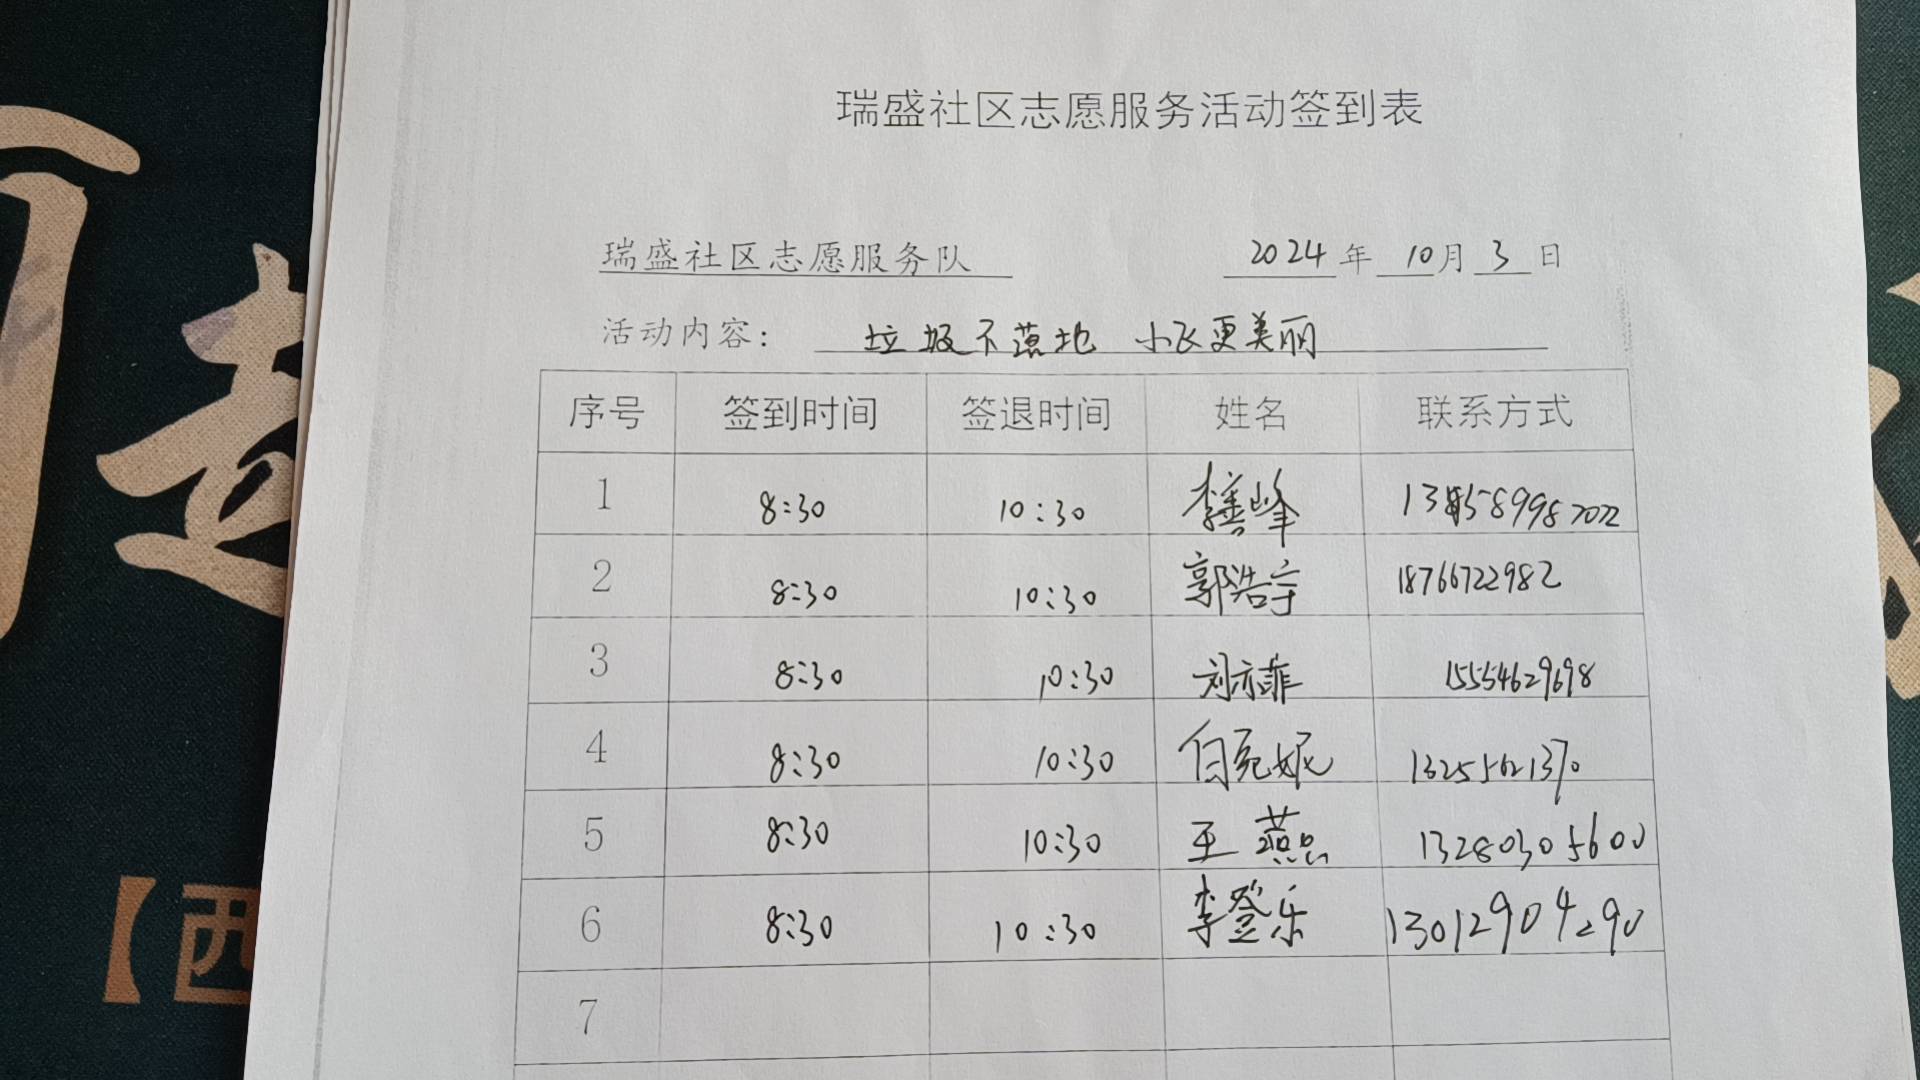 瑞盛社区志愿服务活动签到表
瑞盛社区志愿服务队 2024年 10月 3日
活动内容: 垃圾不落地 小区更美丽
序号 签到时间 签退时间 姓名 联系方式
1 8:30 10:30 李善峰
2 8:30 10:30 郭浩宇 18766722982
3 8:30 10:30 刘亦菲 15554629698
4 8:30 10:30 白宛妮 13255621370
5 8:30 10:30 王燕 13280305600
6 8:30 10:30 李登乐 13012904290
7
【西